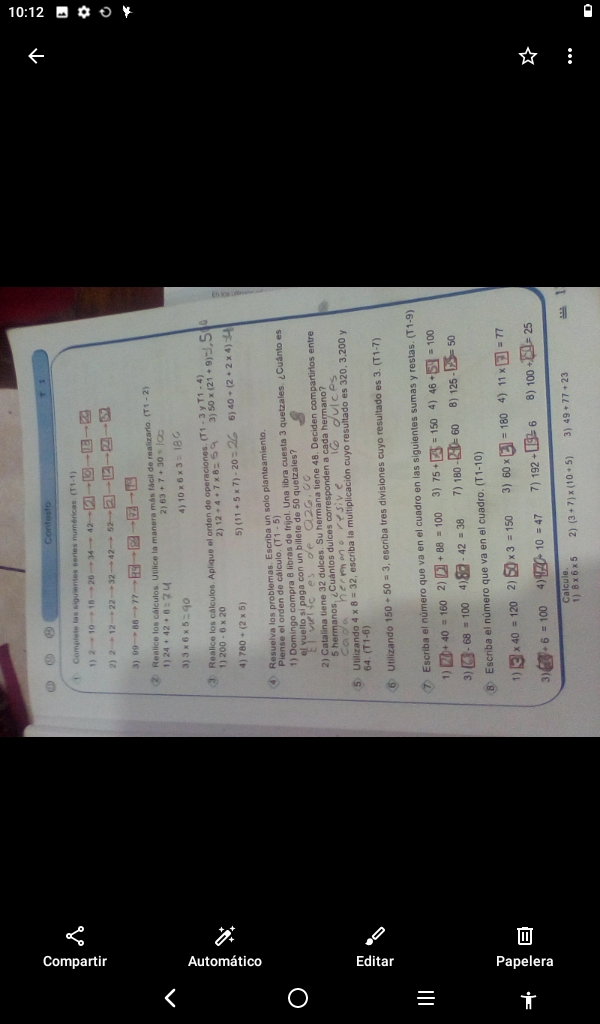 10:12
Contexto
T 1
1 Complete las siguientes series numéricas. (T1-1)
1) 2 → 10 → 18 → 26 → 34 → 42 →
2) 2 → 12 → 22 → 32 → 42 → 52 →
3) 99 → 88 → 77 →
2 Realice los cálculos. Utilice la manera más fácil de realizarlo. (T1 - 2)
1) 24 + 42 + 8 = 74 2) 63 + 7 + 30 = 100
3) 3 x 6 x 5 = 90 4) 10 x 6 x 3 = 180
3 Realice los cálculos. Aplique el orden de operaciones. (T1 - 3 y T1 - 4)
1) 200 - 6 x 20 2) 12 ÷ 4 + 7 x 8 = 59 3) 50 x (21 + 9) = 1,500
4) 780 ÷ (2 x 5) 5) (11 + 5 x 7) - 20 = 26 6) 40 ÷ (2 + 2 x 4)
4 Resuelva los problemas. Escriba un solo planteamiento.
Piense el orden de cálculo. (T1 - 5)
1) Domingo compra 8 libras de frijol. Una libra cuesta 3 quetzales. ¿Cuánto es
el vuelto si paga con un billete de 50 quetzales?
El vuelto es de Q26.00
2) Catalina tiene 32 dulces. Su hermana tiene 48. Deciden compartirlos entre
5 hermanos. ¿Cuántos dulces corresponden a cada hermano?
cada hermano resive 16 dulces
5 Utilizando 4 x 8 = 32, escriba la multiplicación cuyo resultado es 320, 3,200 y
64. (T1-6)
6 Utilizando 150 ÷ 50 = 3, escriba tres divisiones cuyo resultado es 3. (T1-7)
7 Escriba el número que va en el cuadro en las siguientes sumas y restas. (T1-9)
1) + 40 = 160 2) + 88 = 100 3) 75 + = 150 4) 46 + = 100
3) - 68 = 100 4) - 42 = 38 7) 180 - = 60 8) 125 - = 50
8 Escriba el número que va en el cuadro. (T1-10)
1) 3 x 40 = 120 2) 50 x 3 = 150 3) 60 x 3 = 180 4) 11 x 7 = 77
3) ÷ 6 = 100 4) ÷ 10 = 47 7) 192 ÷ = 6 8) 100 ÷ = 25
Calcule.
1) 8 x 6 x 5 2) (3 + 7) x (10 + 5) 3) 49 + 77 + 23
Compartir
Automático
Editar
Papelera